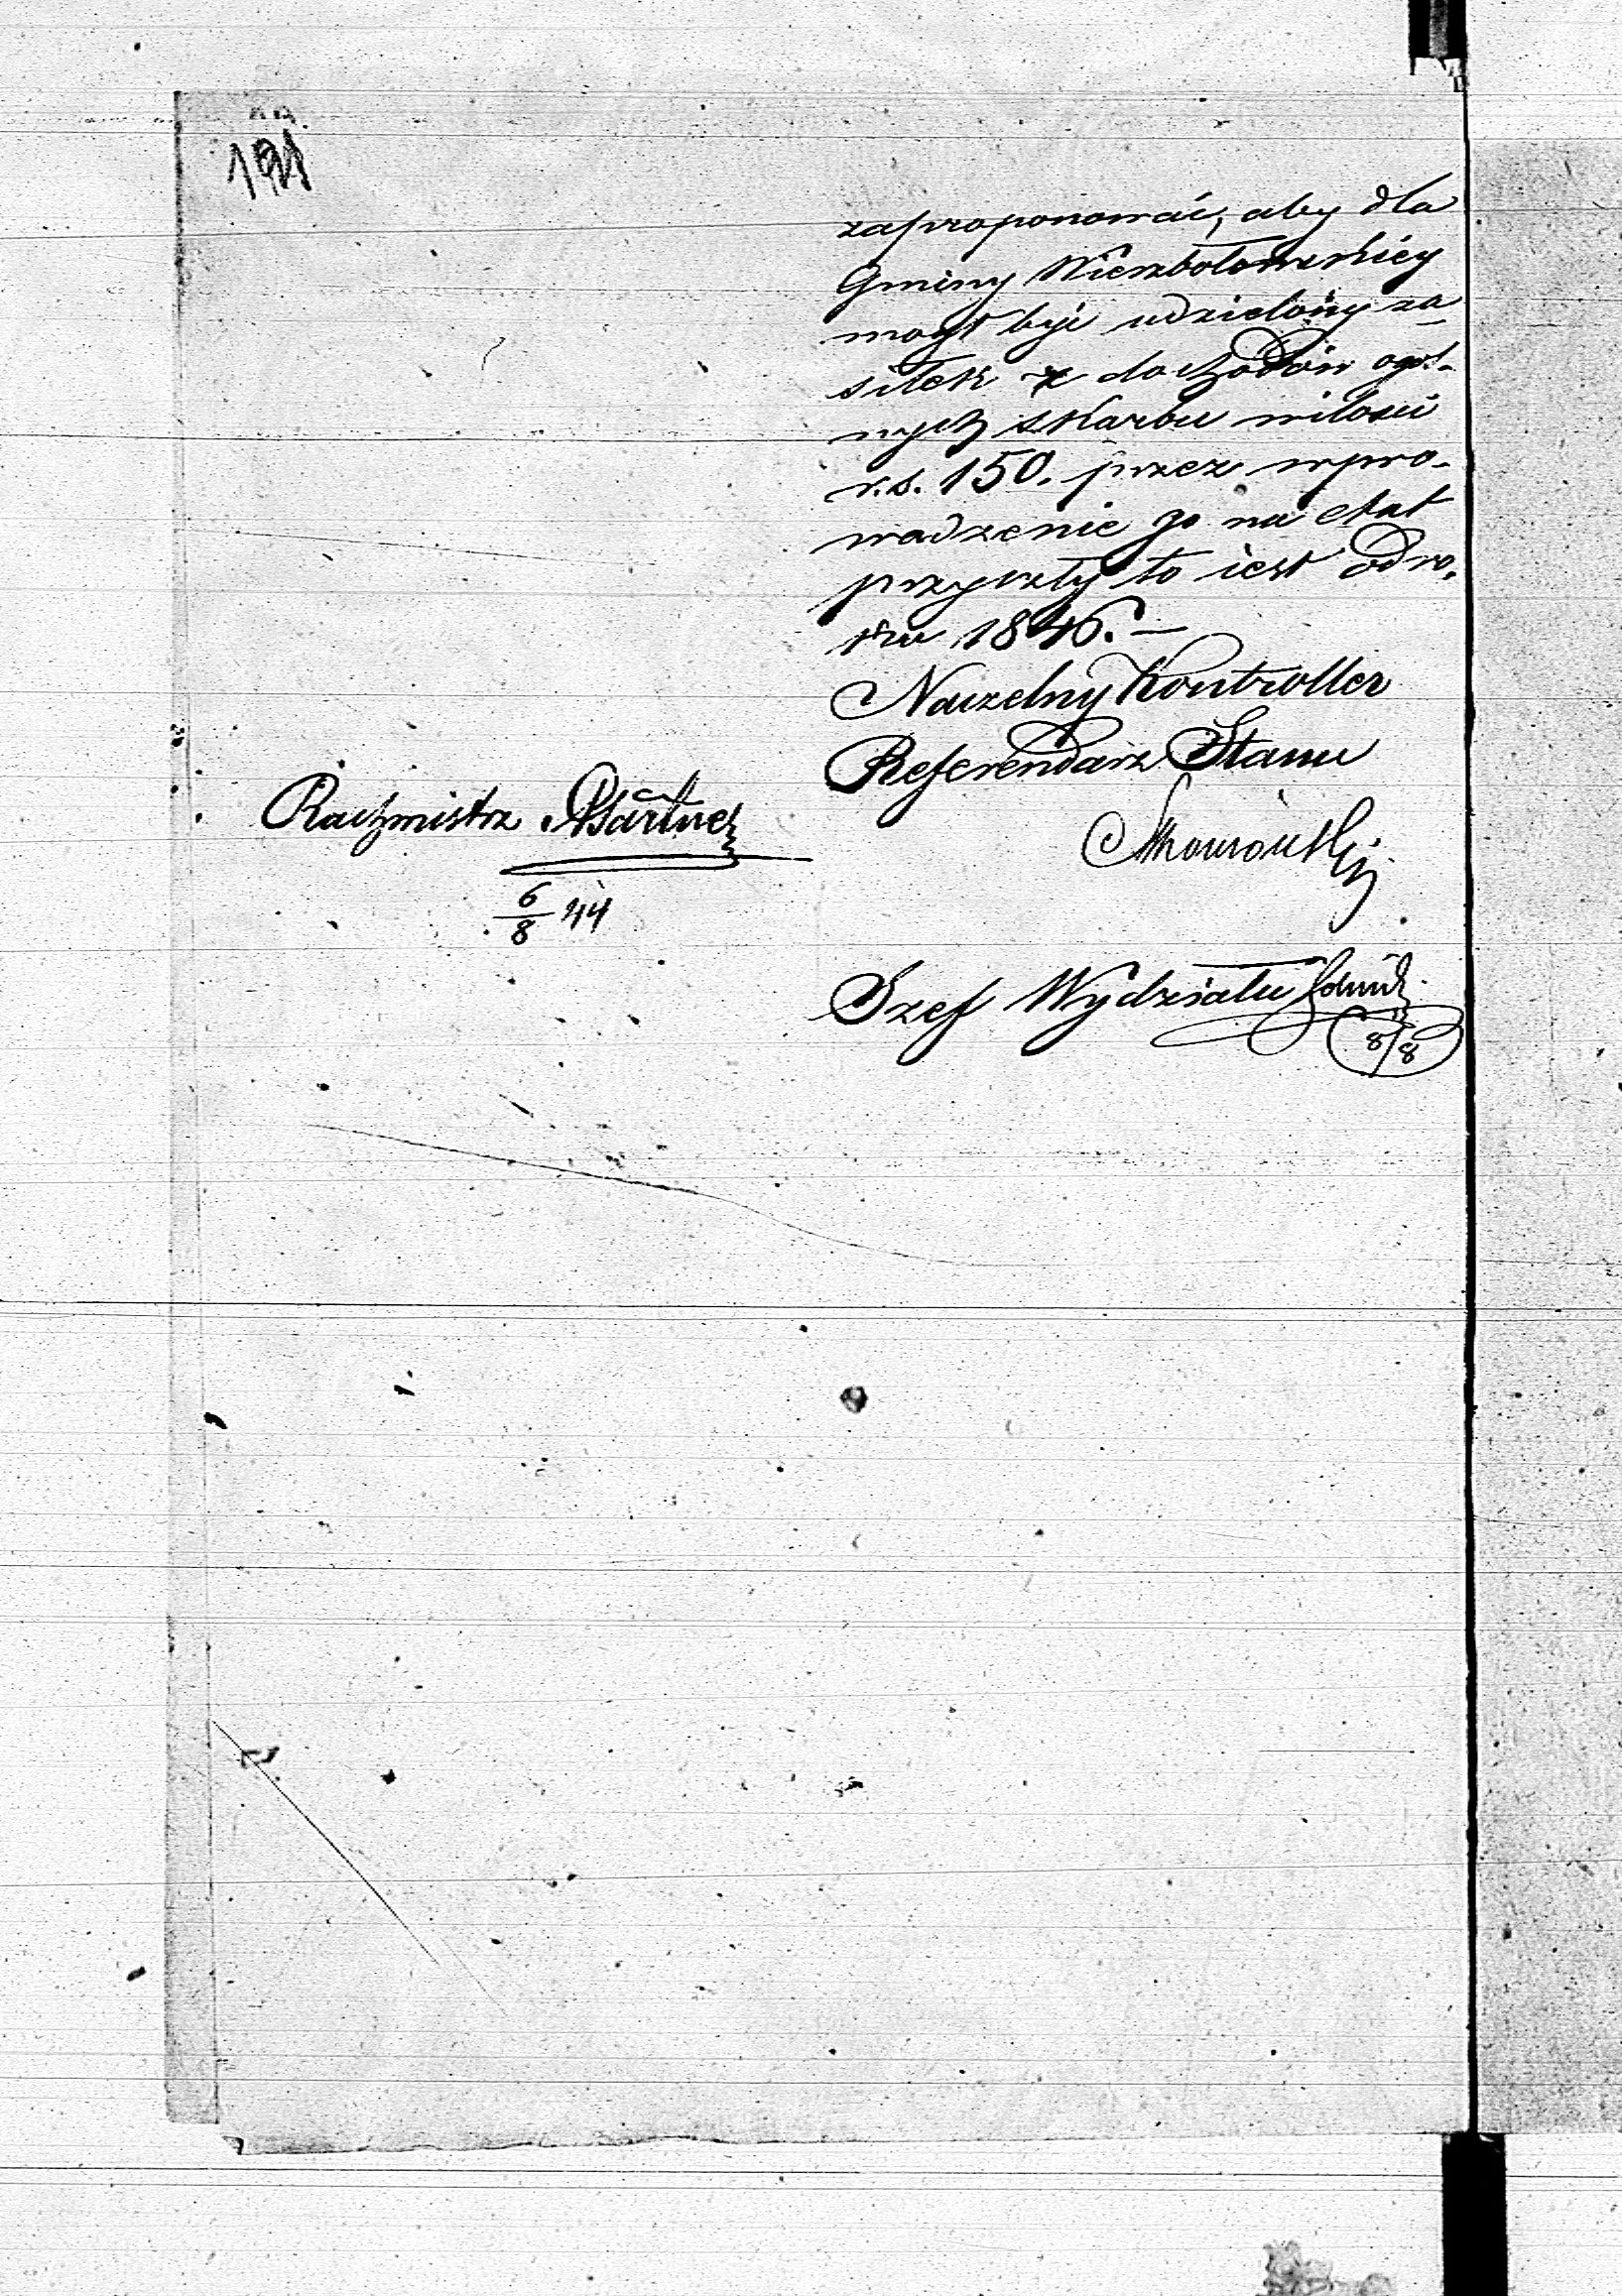 zaproponować, aby dla
Gminy Wierzbołowskiéy
mógł być udzielony za-
siłek z dochodów ogól-
nych skarbu w ilości
r.s. 150. przez wpro-
wadzenie go na etat
przyszły to iest od ro-
ku 1846.—
Naczelny Kontroller
Referendarz Stanu
Rachmistrz
6/8 44
Szef Wydziału
8/8